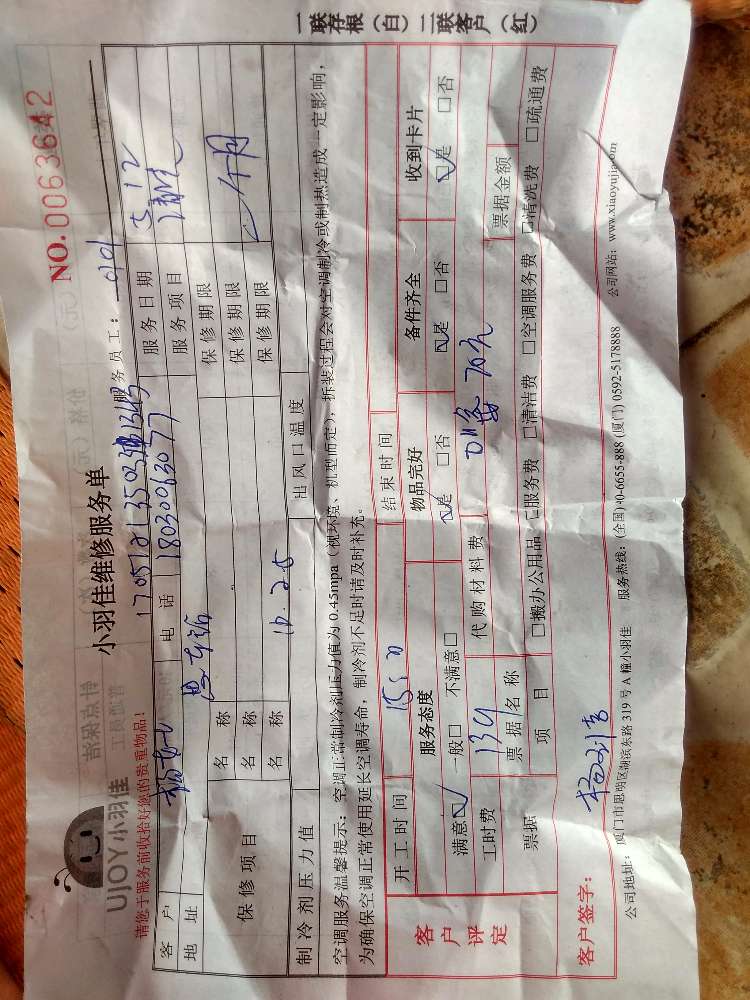 一联存根（白）二联客户（红）
UJOY小羽佳
小羽佳维修服务单
NO.0063642
请您于服务前收拾好您的贵重物品！
服务员工：
客户
电话 18030063077
服务日期 5.12
地址
服务项目
保修项目
名称
保修期限
名称
保修期限
名称
保修期限
制冷剂压力值
出风口温度
空调服务温馨提示：空调正常制冷剂压力值为0.45mpa（视环境、机型而定），拆装过程会对空调制冷或制热造成一定影响，
为确保空调正常使用延长空调寿命，制冷剂不足时请及时补充。
客户评定
开工时间
结束时间
服务态度 物品完好 备件齐全 收到卡片
满意☑ 一般□ 不满意□ ☑是 □否 ☑是 □否 ☑是 □否
工时费 139 代购材料费
票据 票据名称 票据金额
项目 □搬办公用品 □服务费 □清洁费 □空调服务费 □清洗费 □疏通费
客户签字：
公司地址：厦门市思明区湖滨东路319号A幢小羽佳 服务热线：(全国)40-6655-888 (厦门)0592-5178888 公司网站：www.xiaoyujia.com